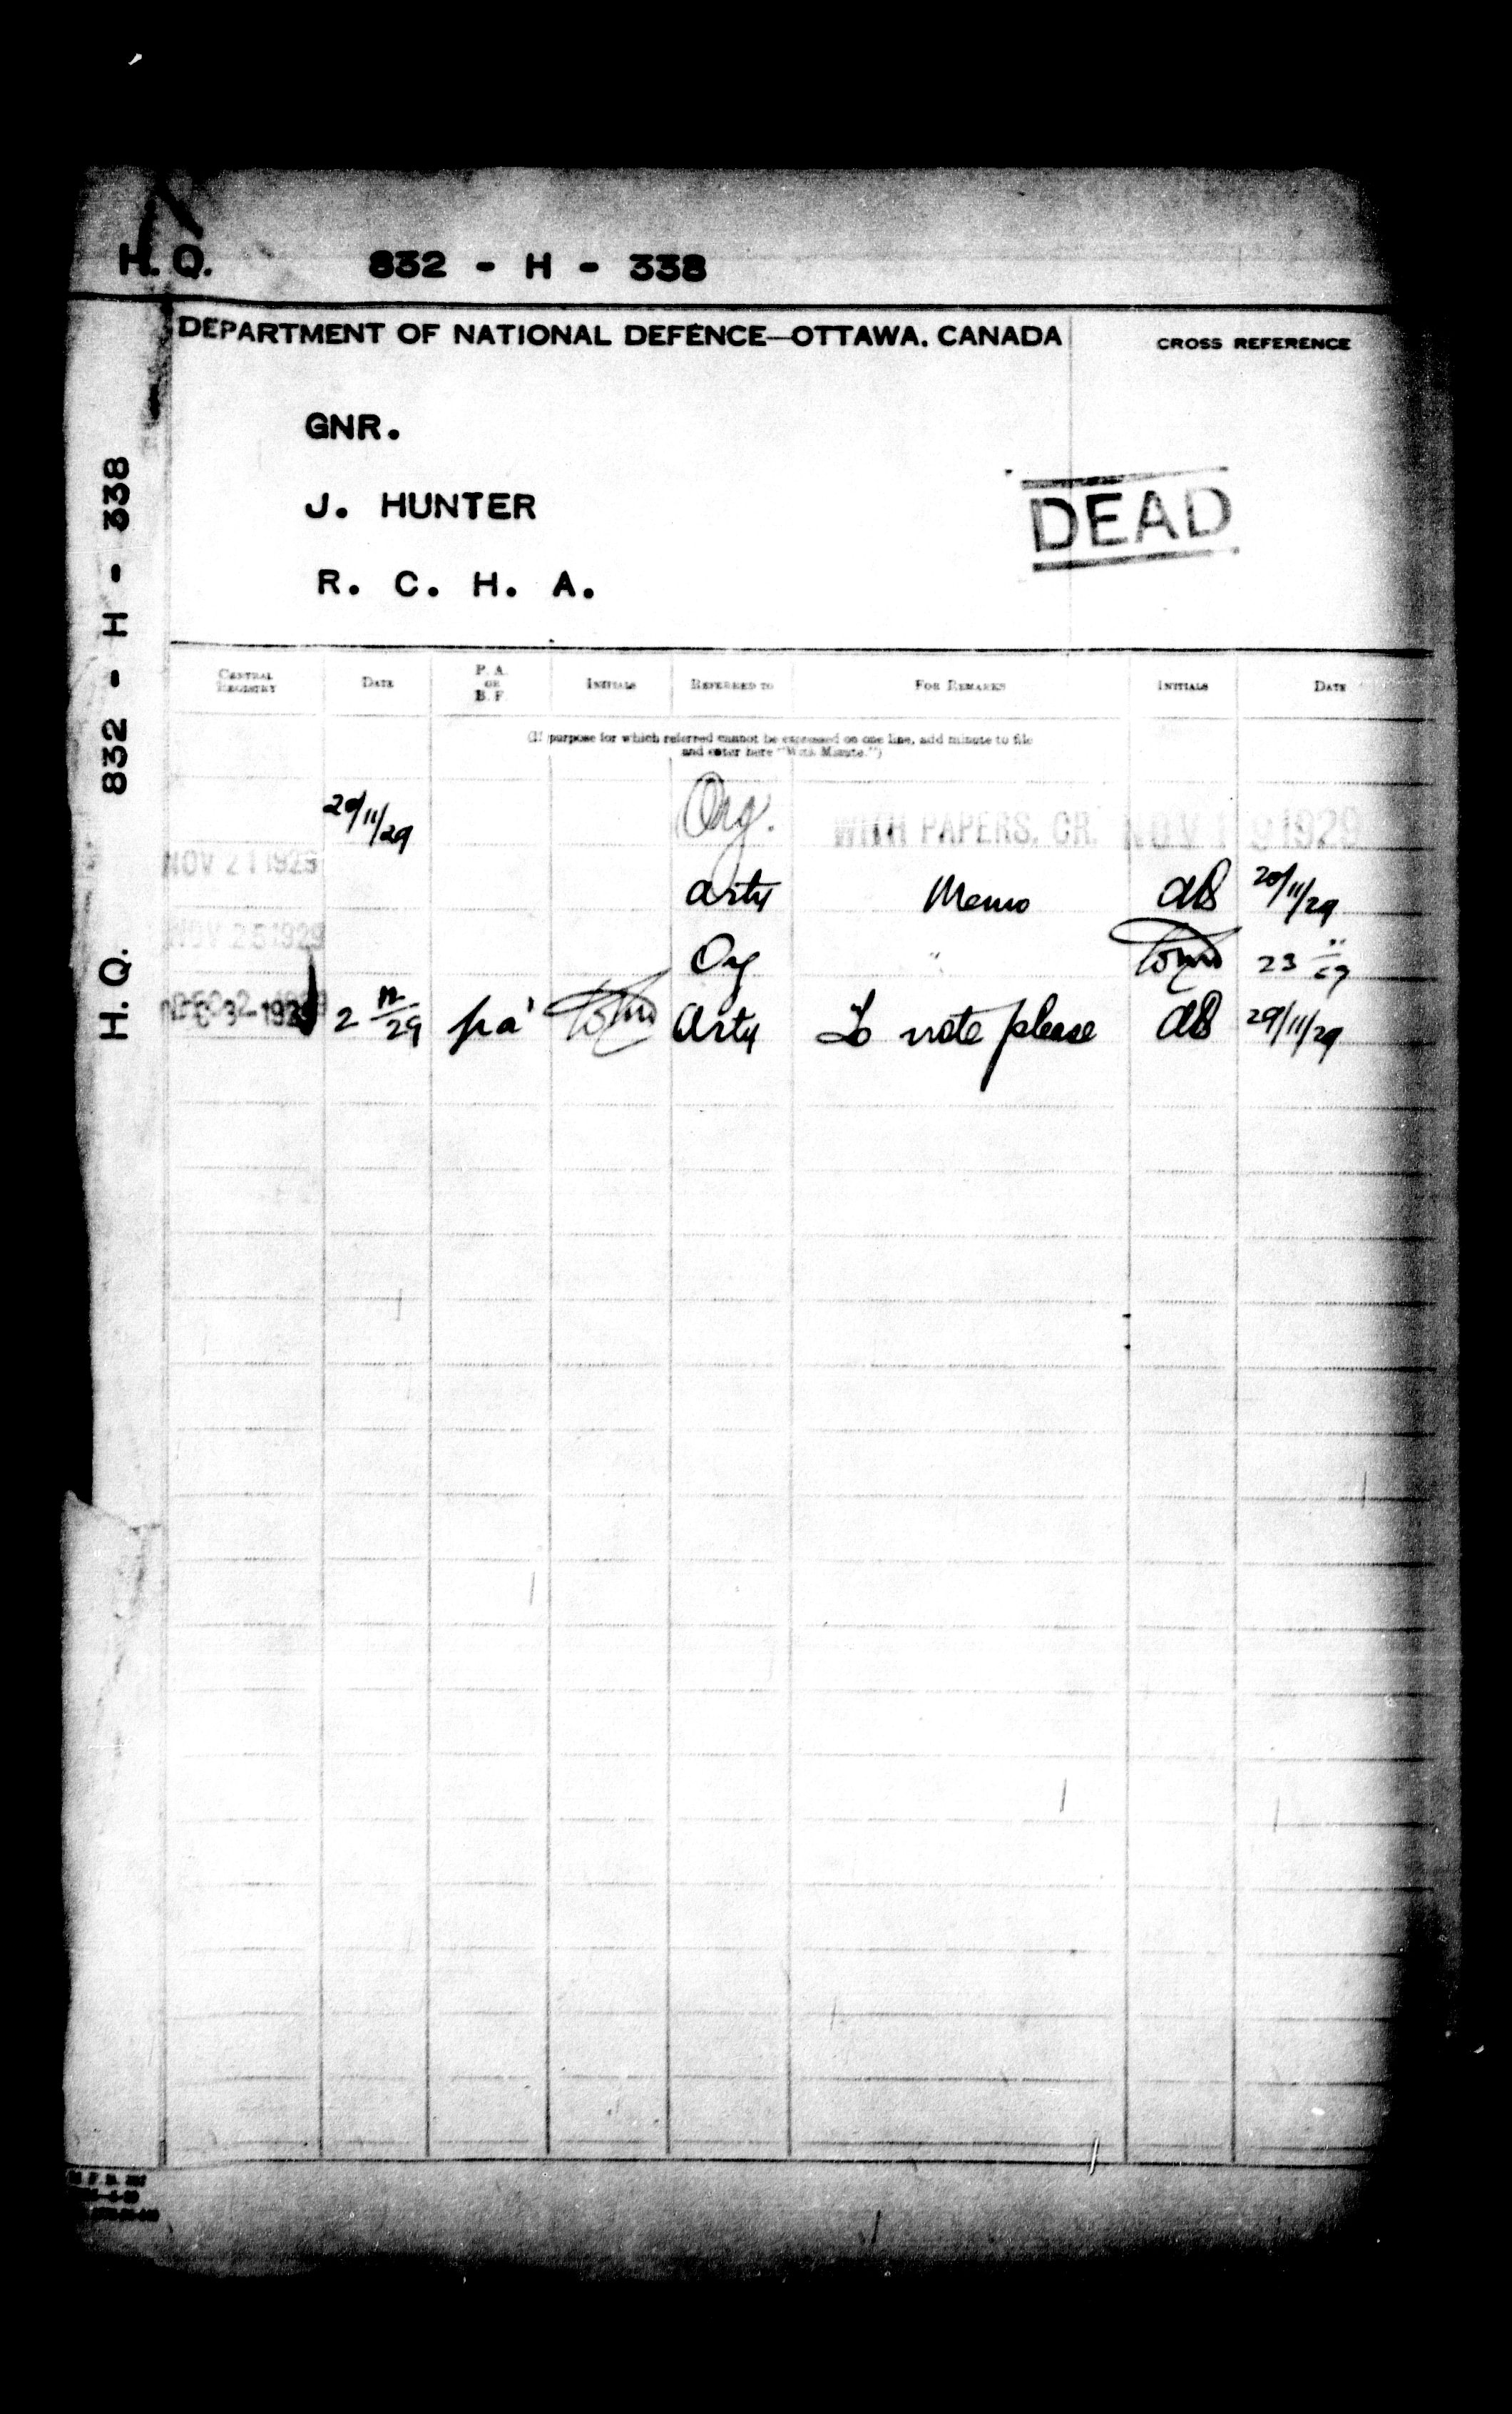 H.Q. 832 - H - 338
DEPARTMENT OF NATIONAL DEFENCE—OTTAWA, CANADA
CROSS REFERENCE
GNR.
J. HUNTER
R. C. H. A.
DEAD
H.Q. 832 - H - 338
CENTRAL REGISTRY DATE P. A. OR B. F. INITIALS REFERRED TO FOR REMARKS INITIALS DATE
(If purpose for which referred cannot be expressed on one line, add minute to file
and enter here "With Minute.")
20/11/29 Org. WITH PAPERS. CR. NOV 19 1929
NOV 21 1929
Arty Memo 20/11/29
NOV 25 1929
Org " 23 11/29
2 12/29 pa Arty To note please 29/11/29